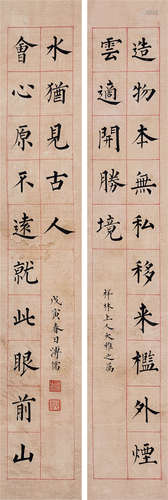 造物本無私移来檻外煙
雲適開勝境
上人大雅之
會心原不遠就此眼前山
水猶見古人
戊寅春日溥儒